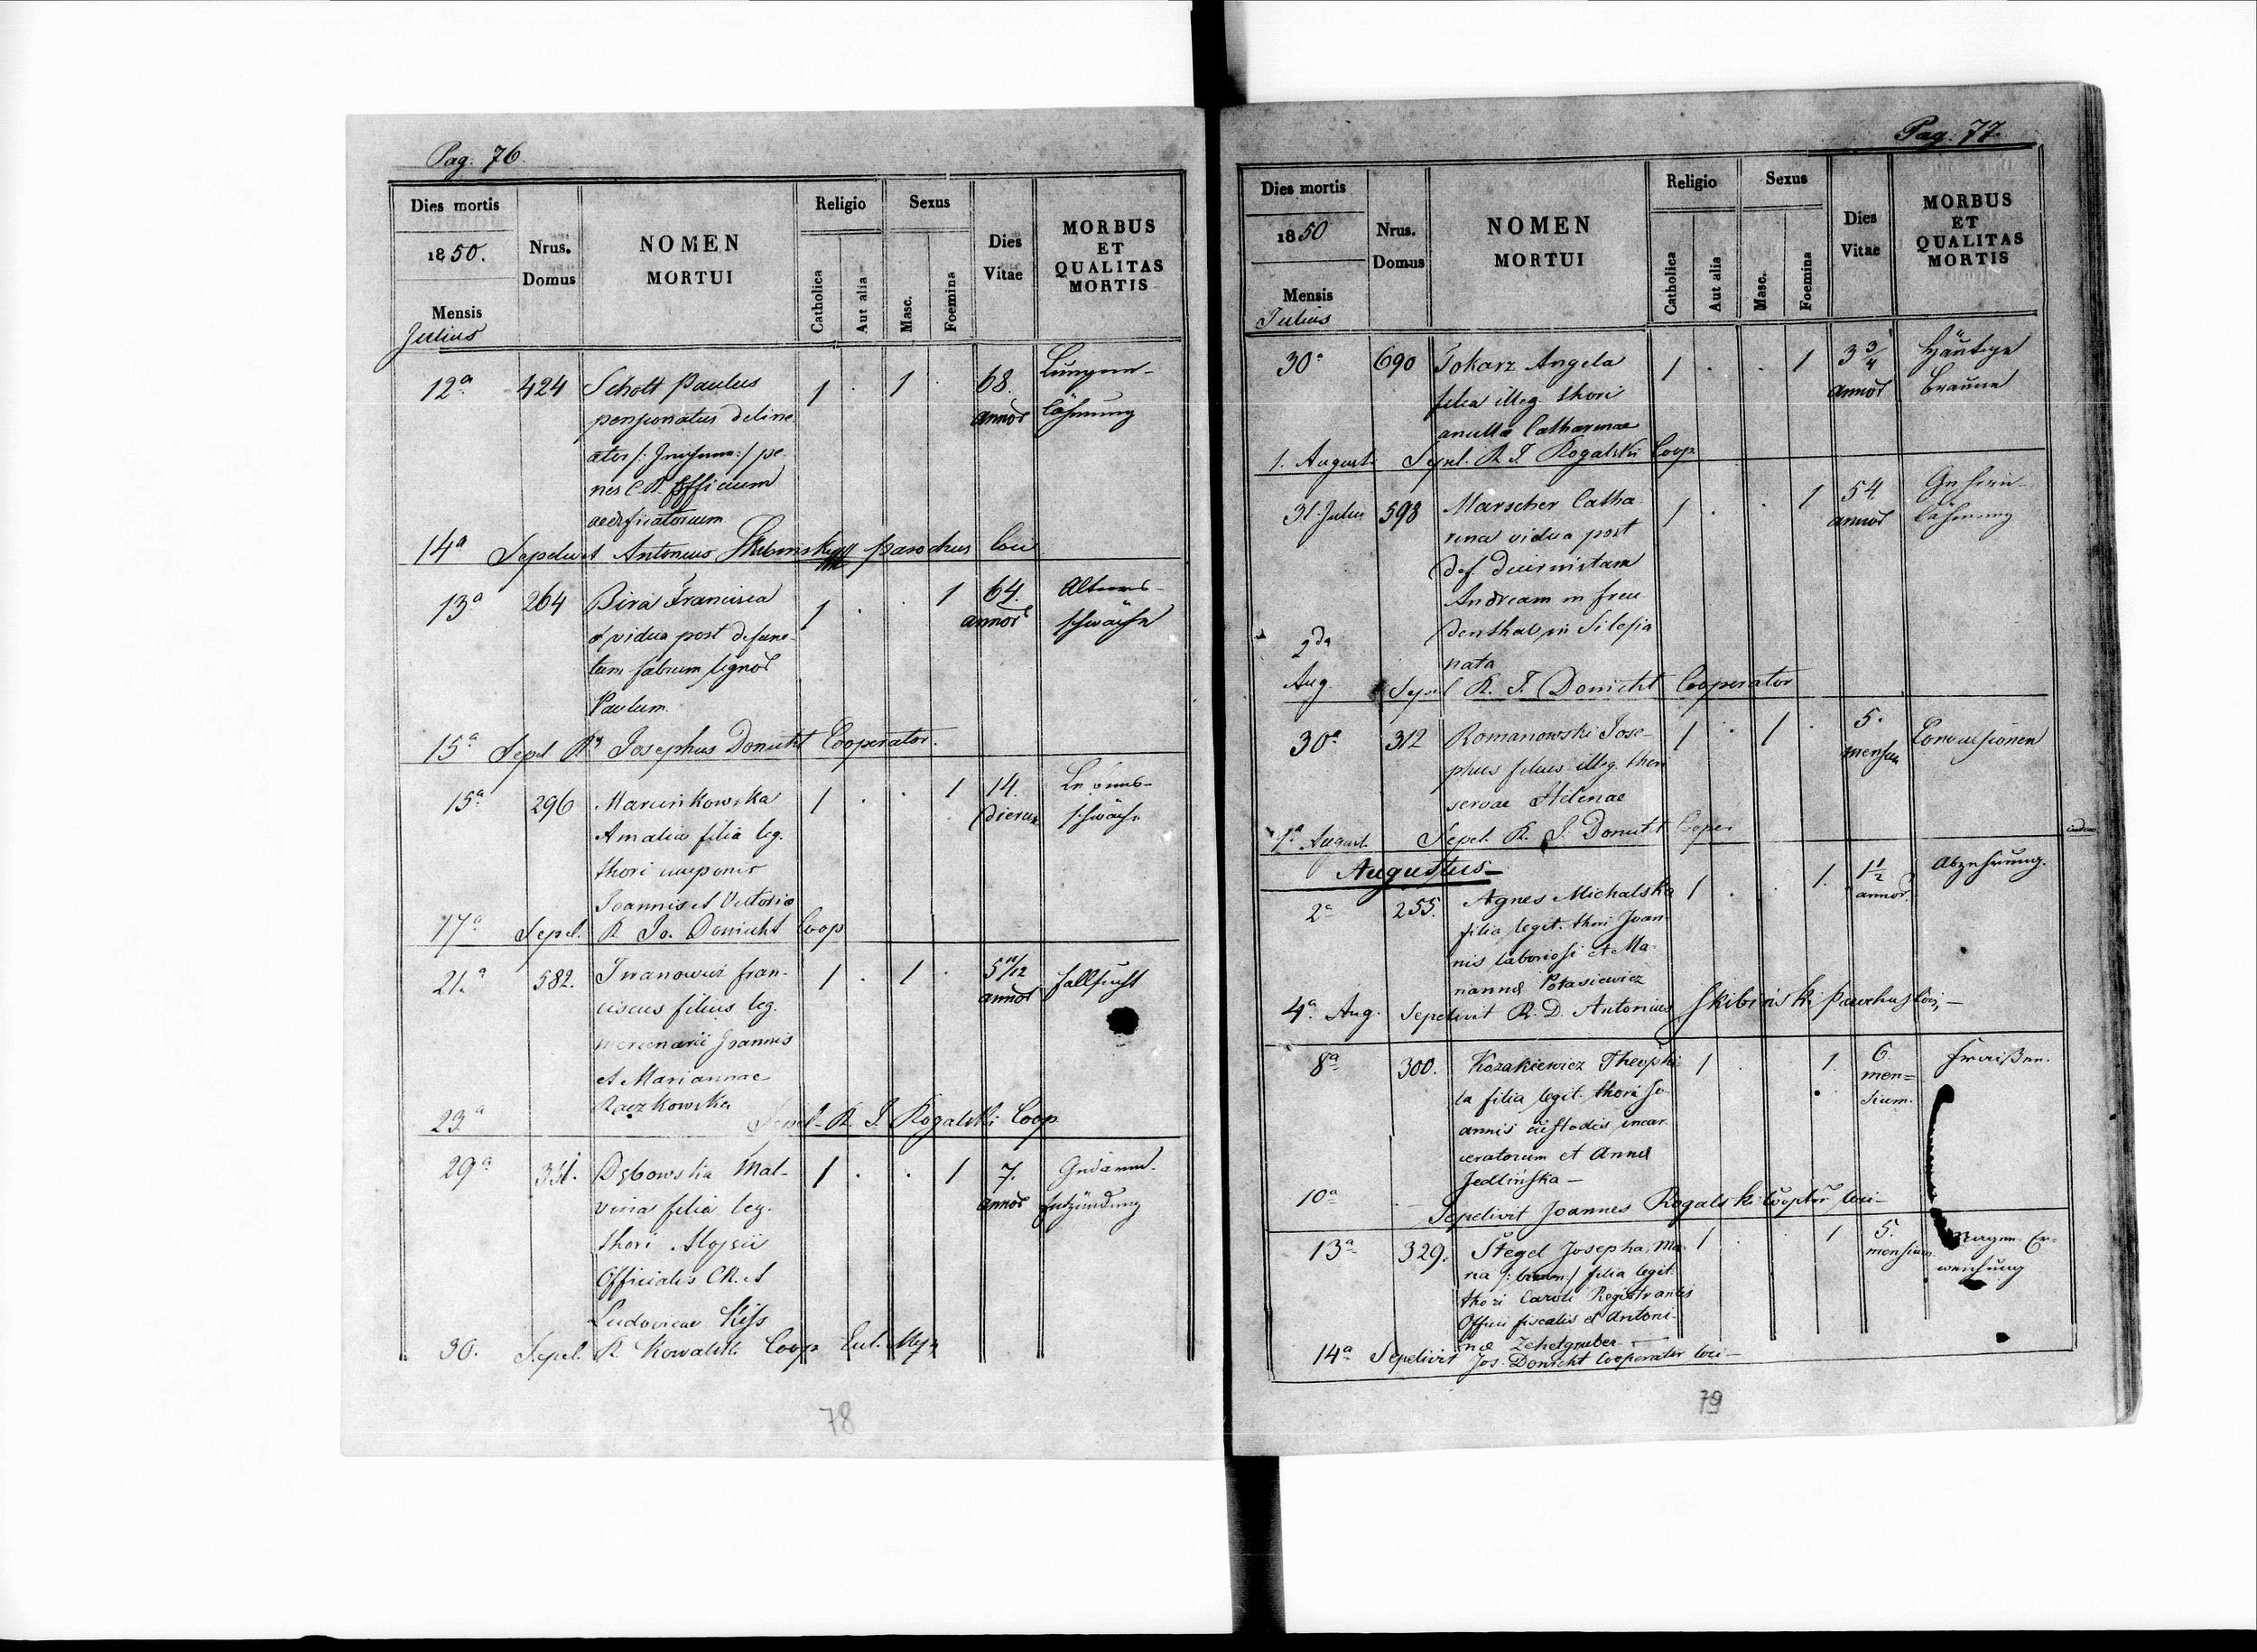 Pag: 76.
Dies mortis
1850.
Mensis
Julius
Nrus.
Domus
NOMEN
MORTUI
Religio
Catholica
Aut alia
Sexus
Masc.
Foemina
Dies
Vitae
MORBUS
ET
QUALITAS
MORTIS
12ª 424 Schott Paulus 1 . 1 . 68. Lungen-
pensionatus deline annor lähmung
ator
nes C.R. Officium
aedificatorium
14ª Sepelivit Antonius Skibinsky parochus loci
13ª 264 Bira Francisca 1 . . 1 64. Alters-
vidua post defunc- annor schwäche
tum fabrum lignor
Paulum.
15ª Sepel Rs Josephus Donicht Cooperator.
15ª 296 Marcinkowska 1 . . 1 14. Lebens-
Amalia filia leg. dierum schwäche
thori cauponis
Joannis et Victoria
17ª Sepel. R Jo. Donicht Coop
21ª 582. Iwanowicz Fran- 1 . 1 . 5 11/12 Fallsucht
ciscus filius leg. annor
mercenarii Joannis
et Mariannae
Raczkowska
23ª Sepel. R. J. Rogalski Coop
29ª Dębowska Mal- 1 . . 1 7. Gedärm-
vina filia leg. annor Entzündung
thori Aloysii
Officialis CR. et
Ludovicae Kiss
30. Sepel. R. Kowalski Coop
78
Pag. 77.
Dies mortis
1850
Mensis
Julius
Nrus.
Domus
NOMEN
MORTUI
Religio
Catholica
Aut alia
Sexus
Masc.
Foemina
Dies
Vitae
MORBUS
ET
QUALITAS
MORTIS
30ª 690 Tokarz Angela 1 . . 1 3 3/4 Häutige
filia illeg. thori annor Bräune
ancilla Catharinae
1. Augusti Sepel. R. J. Rogalski Coop
31. Julii 598 Marscher Catha- 1 . . 1 54 Gehirn-
rina vidua post annor lähmung
def.
Andream in Freu
denthal in Silesia
2da nata
Aug. Sepel R. J. Donicht Cooperator
30ª 312 Romanowski Jose- 1 . 1 . 5. Convulsionen
phus filius illeg. thori mensium
servae Helenae
1ª August. Sepel. R. J. Donicht Cooper
Augustus
2ª 255. Agnes Michalska 1 . . 1. 1 1/2 Abzehrung.
filia legit. thori Joan- annor.
nis laboriosi et Ma-
riannæ Potasiewicz
4ª Aug. Sepelivit R. D. Antonius Skibiński parochus loci, —
8ª 300. Kozakiewicz Theophi- 1 . . 1. 6. Fraißen.
la filia legit. thori Jo- men=
annis custodis incar- sium.
ceratorum et Annæ
Jedlińska —
10ª Sepelivit Joannes Rogalski Cooptor loci —
13ª 329. Stegel Josepha, Ma- 1 . . 1 5. Magen-Er-
ria filia legit. mensium weichung
thori Caroli Registrantis
Officii fiscalis et Antoni-
næ Zehetgruber —
14ª Sepelivit Jos. Donicht Cooperator loci —
79